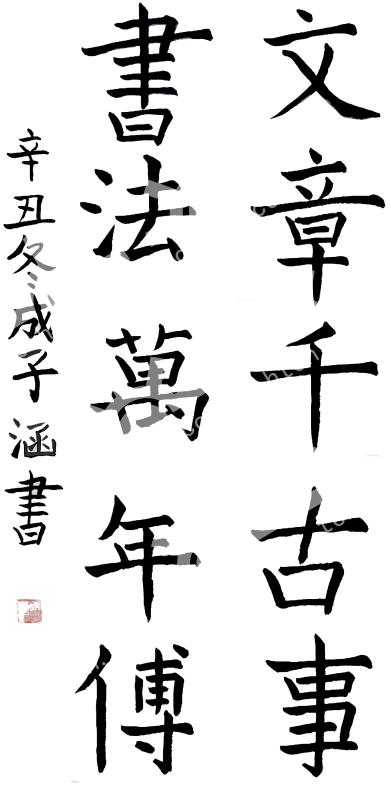 文章千古事
書法萬年傅
辛丑冬成子涵書